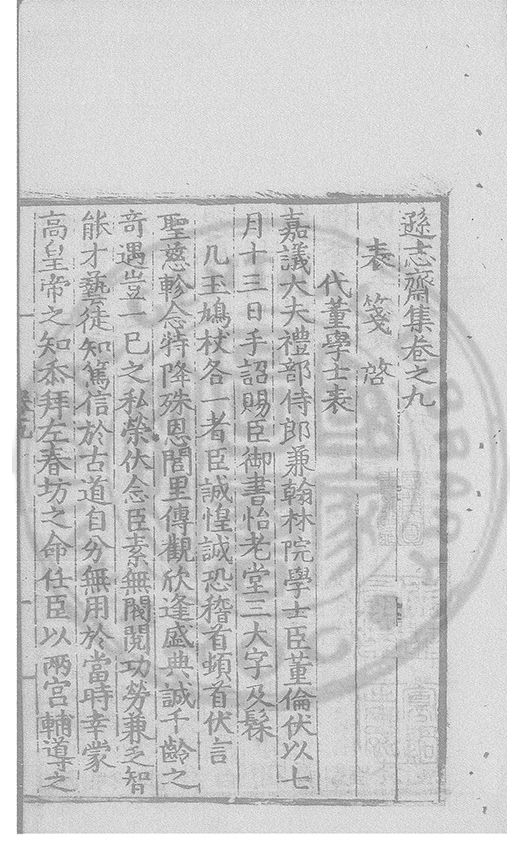 遜志齋集卷之九
表 箋 啓
代董學士表
嘉議大夫禮部侍郎兼翰林院學士臣董倫伏以七
月十三日手詔賜臣御書怡老堂三大字及髹
几玉鳩杖各一者臣誠惶誠恐稽首頓首伏言
聖慈軫念特降殊恩閭里傳觀欣逢盛典誠千齡之
奇遇豈一巳之私榮伏念臣素無閥閱功勞兼乏智
能才藝徒知篤信於古道自分無用於當時幸蒙
高皇帝之知忝拜左春坊之命任臣以兩宮輔導之